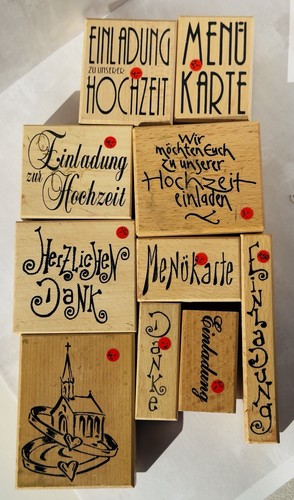 EINLADUNG
ZU UNSERER
HOCHZEIT
MENÜ
KARTE
Einladung
zur
Hochzeit
Wir
möchten Euch
zu unserer
Hochzeit
einladen
Herzlichen
Dank
Menükarte
Einladung
Danke
Einladung